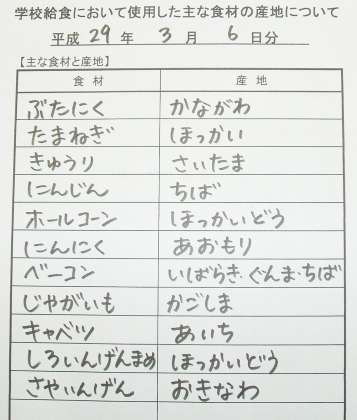 学校給食において使用した主な食材の産地について
平成 29 年 3 月 6 日分
【主な食材と産地】
食材 産地
ぶたにく かながわ
たまねぎ ほっかい
きゅうり さいたま
にんじん ちば
ホールコーン ほっかいどう
にんにく あおもり
ベーコン いばらき・ぐんま・ちば
じゃがいも かごしま
キャベツ あいち
しろいんげんまめ ほっかいどう
さやいんげん おきなわ